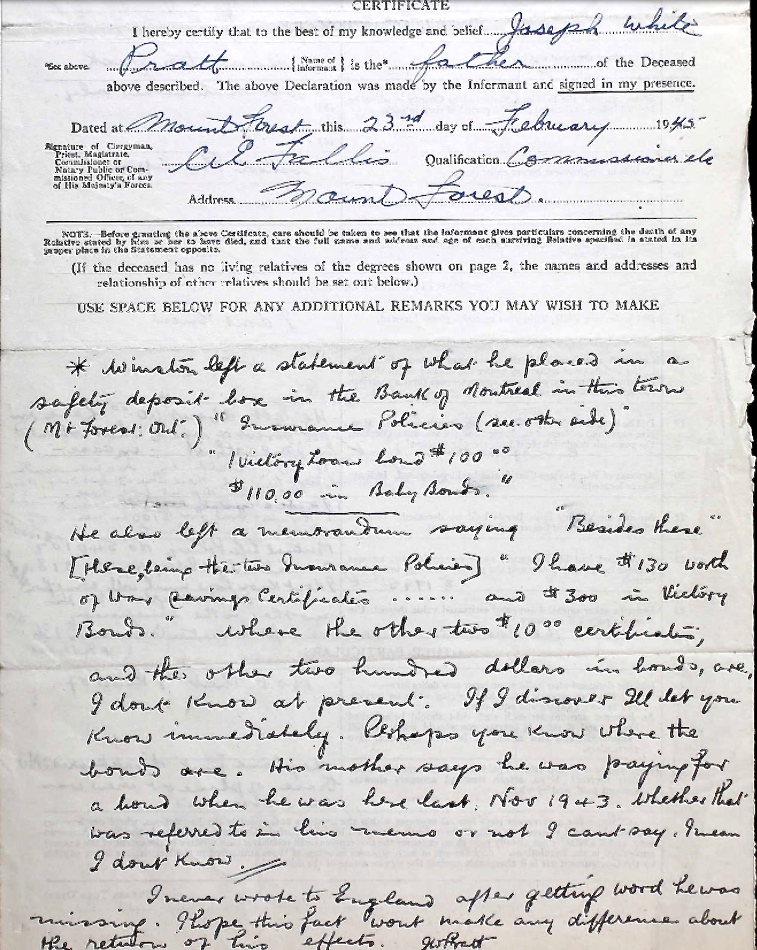 CERTIFICATE
I hereby certify that to the best of my knowledge and belief Joseph White
*See above. Pratt {Name of Informant} is the* father of the Deceased
above described. The above Declaration was made by the Informant and signed in my presence.
Dated at Mount Forest this 23rd day of February 1945
Signature of Clergyman, Priest, Magistrate, Commissioner or Notary Public or Commissioned Officer, of any of His Majesty's Forces. CE Fallis Qualification Commissioner etc
Address Mount Forest.
NOTE.—Before granting the above Certificate, care should be taken to see that the informant gives particulars concerning the death of any
Relative stated by him or her to have died, and that the full name and address and age of each surviving Relative specified is stated in its
proper place in the Statement opposite.
(If the deceased has no living relatives of the degrees shown on page 2, the names and addresses and
relationship of other relatives should be set out below.)
USE SPACE BELOW FOR ANY ADDITIONAL REMARKS YOU MAY WISH TO MAKE
* Winston left a statement of what he placed in a
safety deposit box in the Bank of Montreal in this town
(Mt Forest. Ont.) "Insurance Policies (see other side)"
"1 Victory Loan bond $100.00
$110.00 in Baby Bonds."
He also left a memorandum saying "Besides these"
[these, being the two Insurance Policies] "I have $130 worth
of War Savings Certificates ...... and $300 in Victory
Bonds." Where the other two $10.00 certificates,
and the other two hundred dollars in bonds, are,
I dont know at present. If I discover Ill let you
know immediately. Perhaps you know where the
bonds are. His mother says he was paying for
a bond when he was here last, Nov 1943. Whether that
was referred to in his memo or not I cant say. I mean
I dont know.
I never wrote to England after getting word he was
missing. I hope this fact wont make any difference about
the return of his effects. JW Pratt